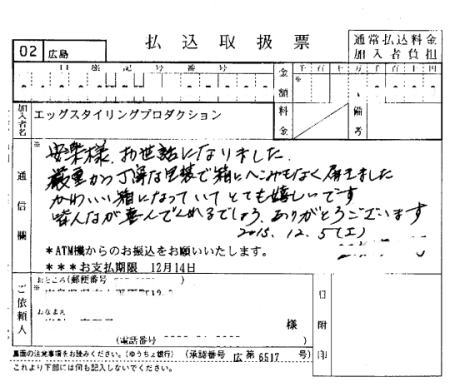 払込取扱票
通常払込料金
加入者負担
02 広島
口座記号番号
金額
千百十万千百十円
加入者名
エッグスタイリングプロダクション
料金
備考
通信欄
安楽様、お世話になりました。
厳重かつ丁寧な包装で箱にへこみもなく届きました
かわいい箱になっていてとても嬉しいです
皆んなが喜んでくれるでしょう。ありがとうございます
2015.12.5(土)
*ATM機からのお振込をお願いいたします。
***お支払期限 12月14日
ご依頼人
おところ(郵便番号
おなまえ
様
(電話番号
日附印
裏面の注意事項をお読みください。(ゆうちょ銀行) (承認番号 広第 6517 号)
これより下部には何も記入しないでください。